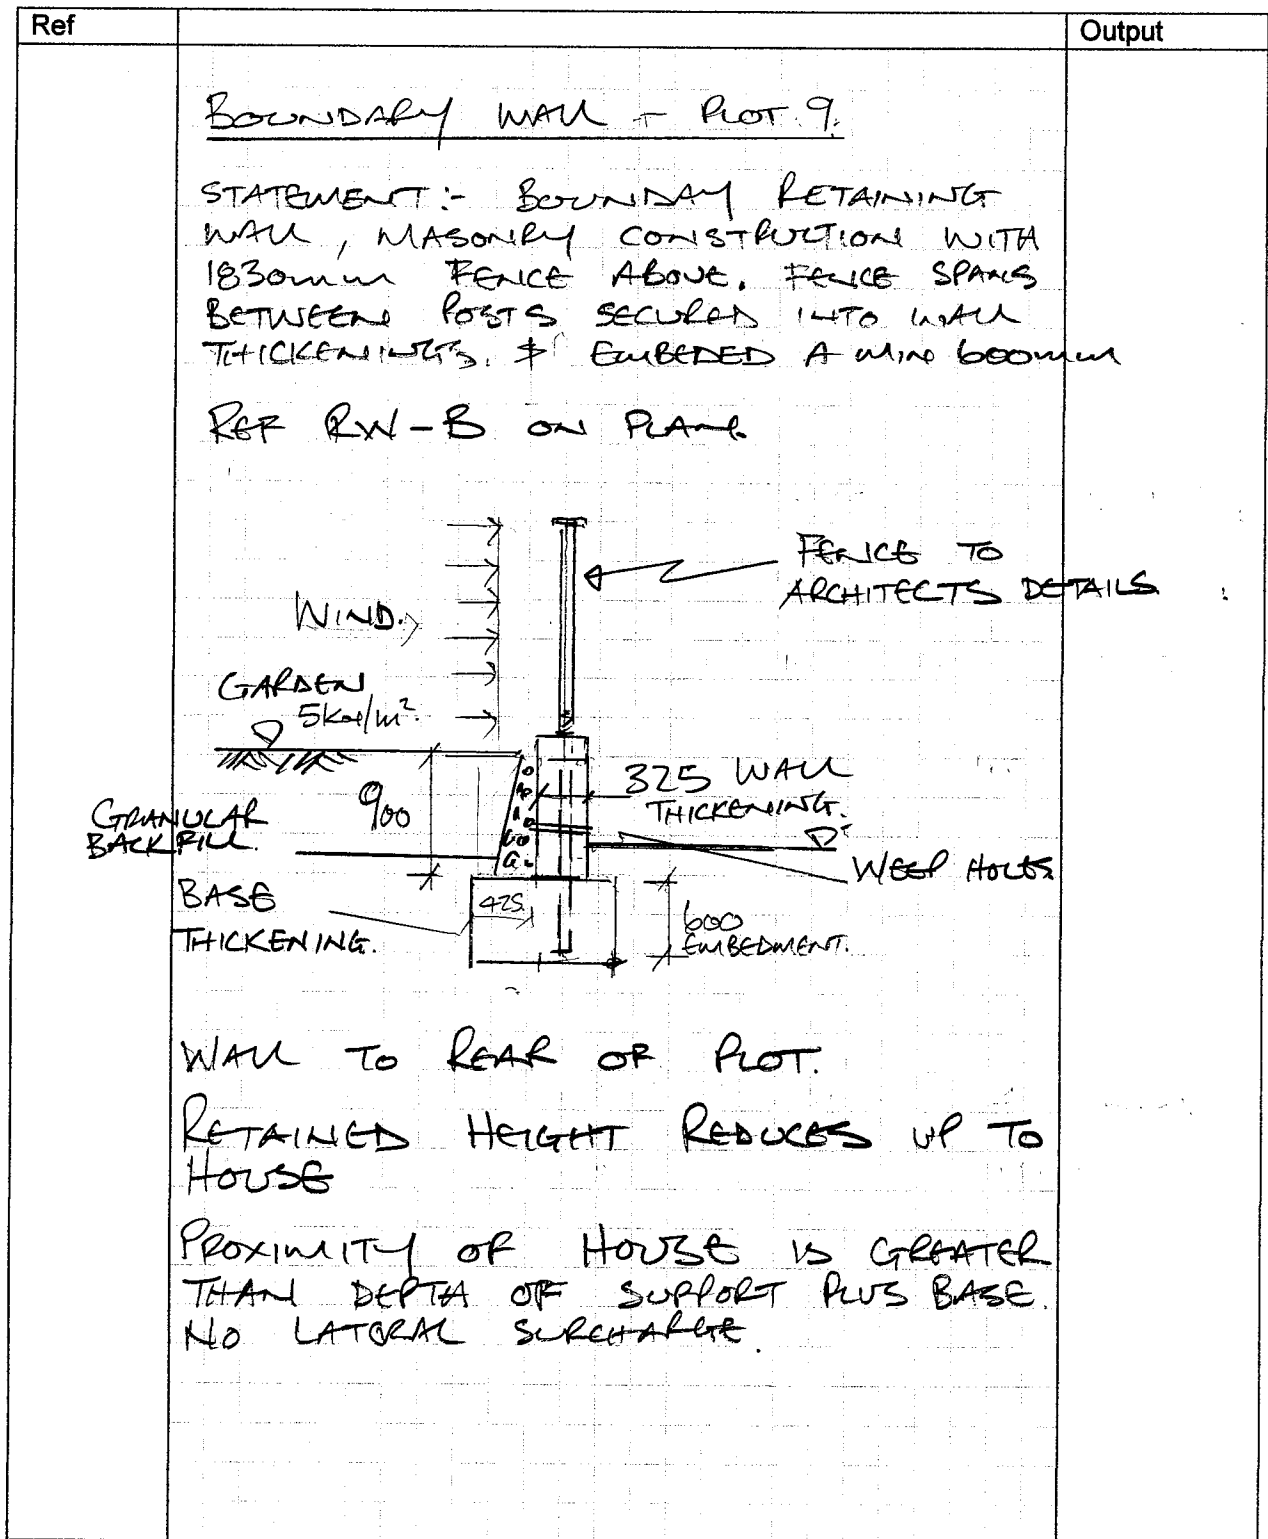 Ref
Output
BOUNDARY WALL - PLOT 9.
STATEMENT:- BOUNDAY RETAINING
WALL, MASONRY CONSTRUCTION WITH
1830mm FENCE ABOVE. FENCE SPANS
BETWEEN POSTS SECURED INTO WALL
THICKENINGS. & EMBEDED A MIN 600mm
REF RW-B ON PLAN.
FENCE TO
ARCHITECTS DETAILS
WIND.
GARDEN
5KN/m².
325 WALL
THICKENING.
900
GRANULAR
BACKFILL.
WEEP HOLES
BASE
THICKENING.
425.
600
EMBEDMENT.
WALL TO REAR OF PLOT.
RETAINED HEIGHT REDUCES UP TO
HOUSE
PROXIMITY OF HOUSE IS GREATER
THAN DEPTH OF SUPPORT PLUS BASE.
NO LATERAL SURCHARGE.